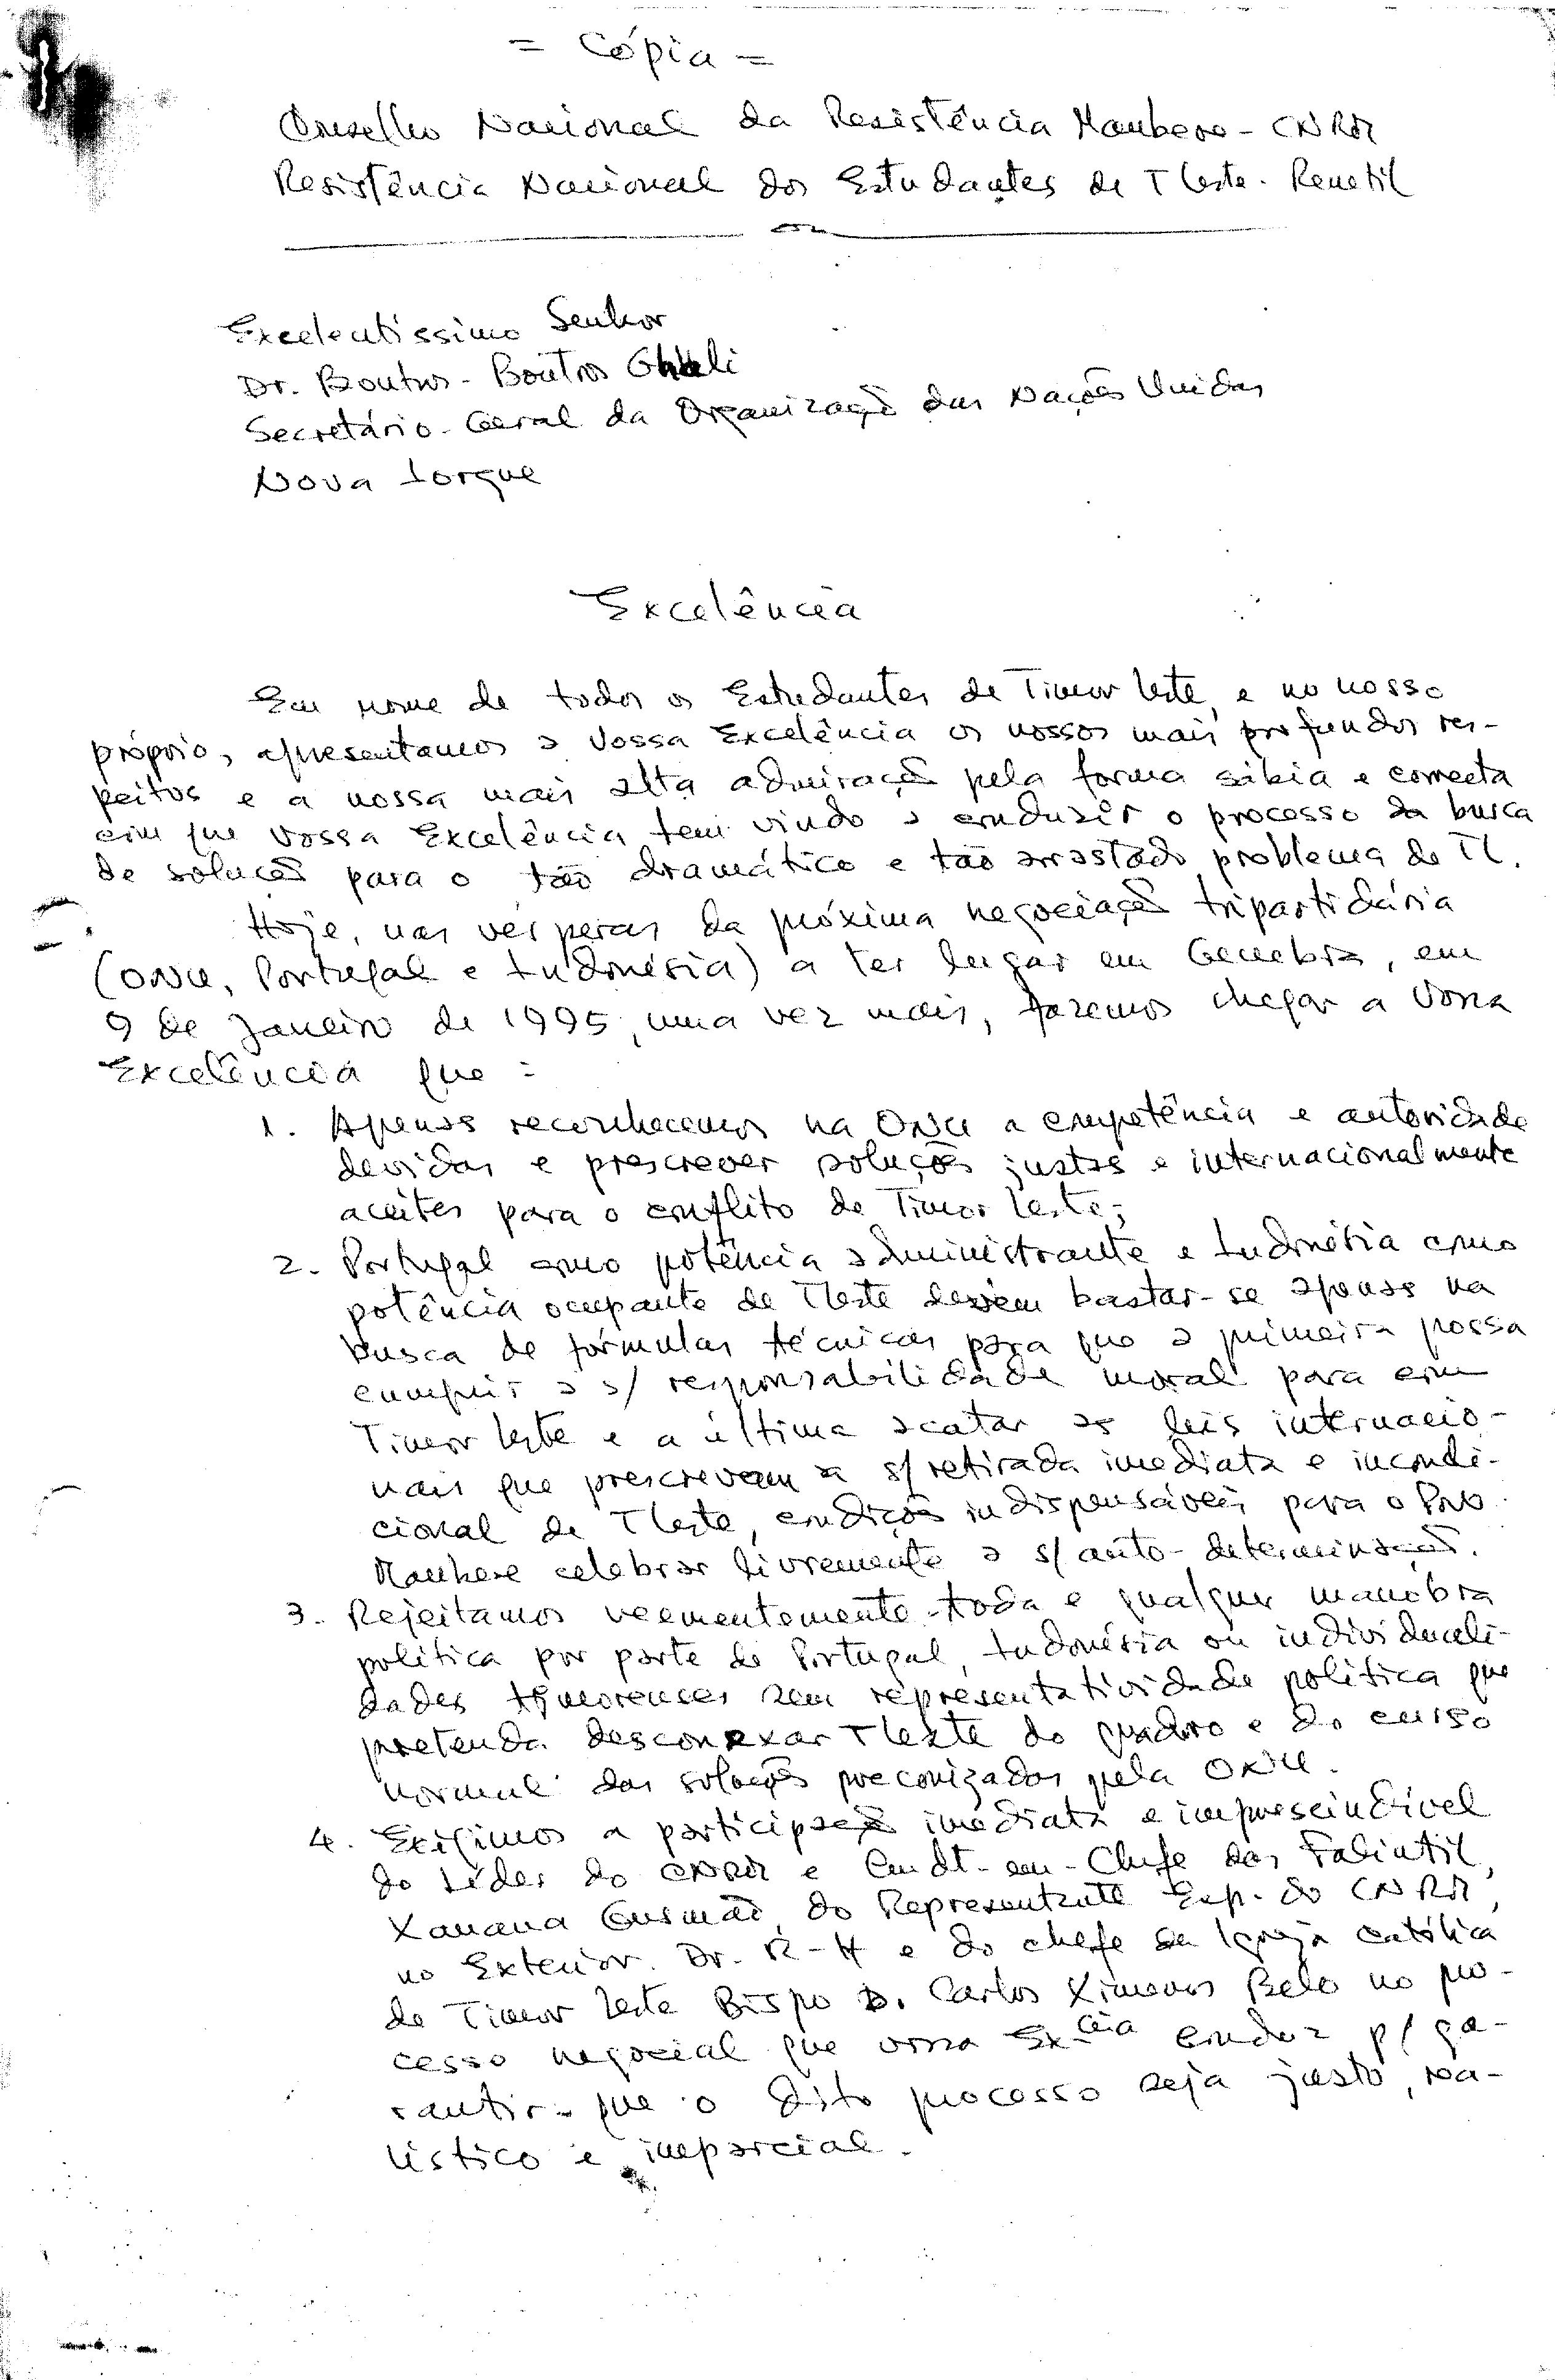 = Cópia =
Conselho Nacional da Resistência Maubere - CNRM
Resistência Nacional dos Estudantes de T Leste. Renetil
Excelentíssimo Senhor
Dr. Boutros - Boutros Ghali
Secretário-Geral da Organização das Nações Unidas
Nova Iorque
Excelência
Em nome de todos os Estudantes de Timor Leste, e no nosso
próprio, apresentamos a Vossa Excelência os nossos mais profundos res-
peitos e a nossa mais alta admiração pela forma sábia e correcta
com que Vossa Excelência tem vindo a conduzir o processo da busca
de solução para o tão dramático e tão arrastado problema de TL.
Hoje, nas vésperas da próxima negociação tripartidária
(ONU, Portugal e Indonésia) a ter lugar em Genebra, em
9 de Janeiro de 1995, uma vez mais, fazemos chegar a Vossa
Excelência que :
1. Apenas reconhecemos na ONU a competência e autoridade
devidas e prescrever soluções justas e internacionalmente
aceites para o conflito de Timor Leste;
2. Portugal como potência administrante e Indonésia como
potência ocupante de TLeste devem bastar-se apenas na
busca de fórmulas técnicas para que a primeira possa
cumprir a s/ responsabilidade moral para com
Timor Leste e a última acatar as leis internacio-
nais que prescrevam a s/ retirada imediata e incondi-
cional de TLeste, condições indispensáveis para o Povo
Maubere celebrar livremente a s/ auto-determinação.
3. Rejeitamos veementemente toda e qualquer manobra
política por parte de Portugal, Indonésia ou individuali-
dades timorenses sem representatividade política que
pretenda desconexar TLeste do quadro e do curso
normal das soluções preconizadas pela ONU.
4. Exigimos a participação imediata e imprescindível
do Líder do CNRM e Cmdt-em-Chefe das Falintil,
Xanana Gusmão, do Representante Esp. do CNRM,
no Exterior. Dr. R-H e do chefe da Igreja católica
de Timor Leste Bispo D. Carlos Ximenes Belo no pro-
cesso negocial que vossa Excia conduz p/ ga-
rantir que o dito processo seja justo, rea-
lístico e imparcial.